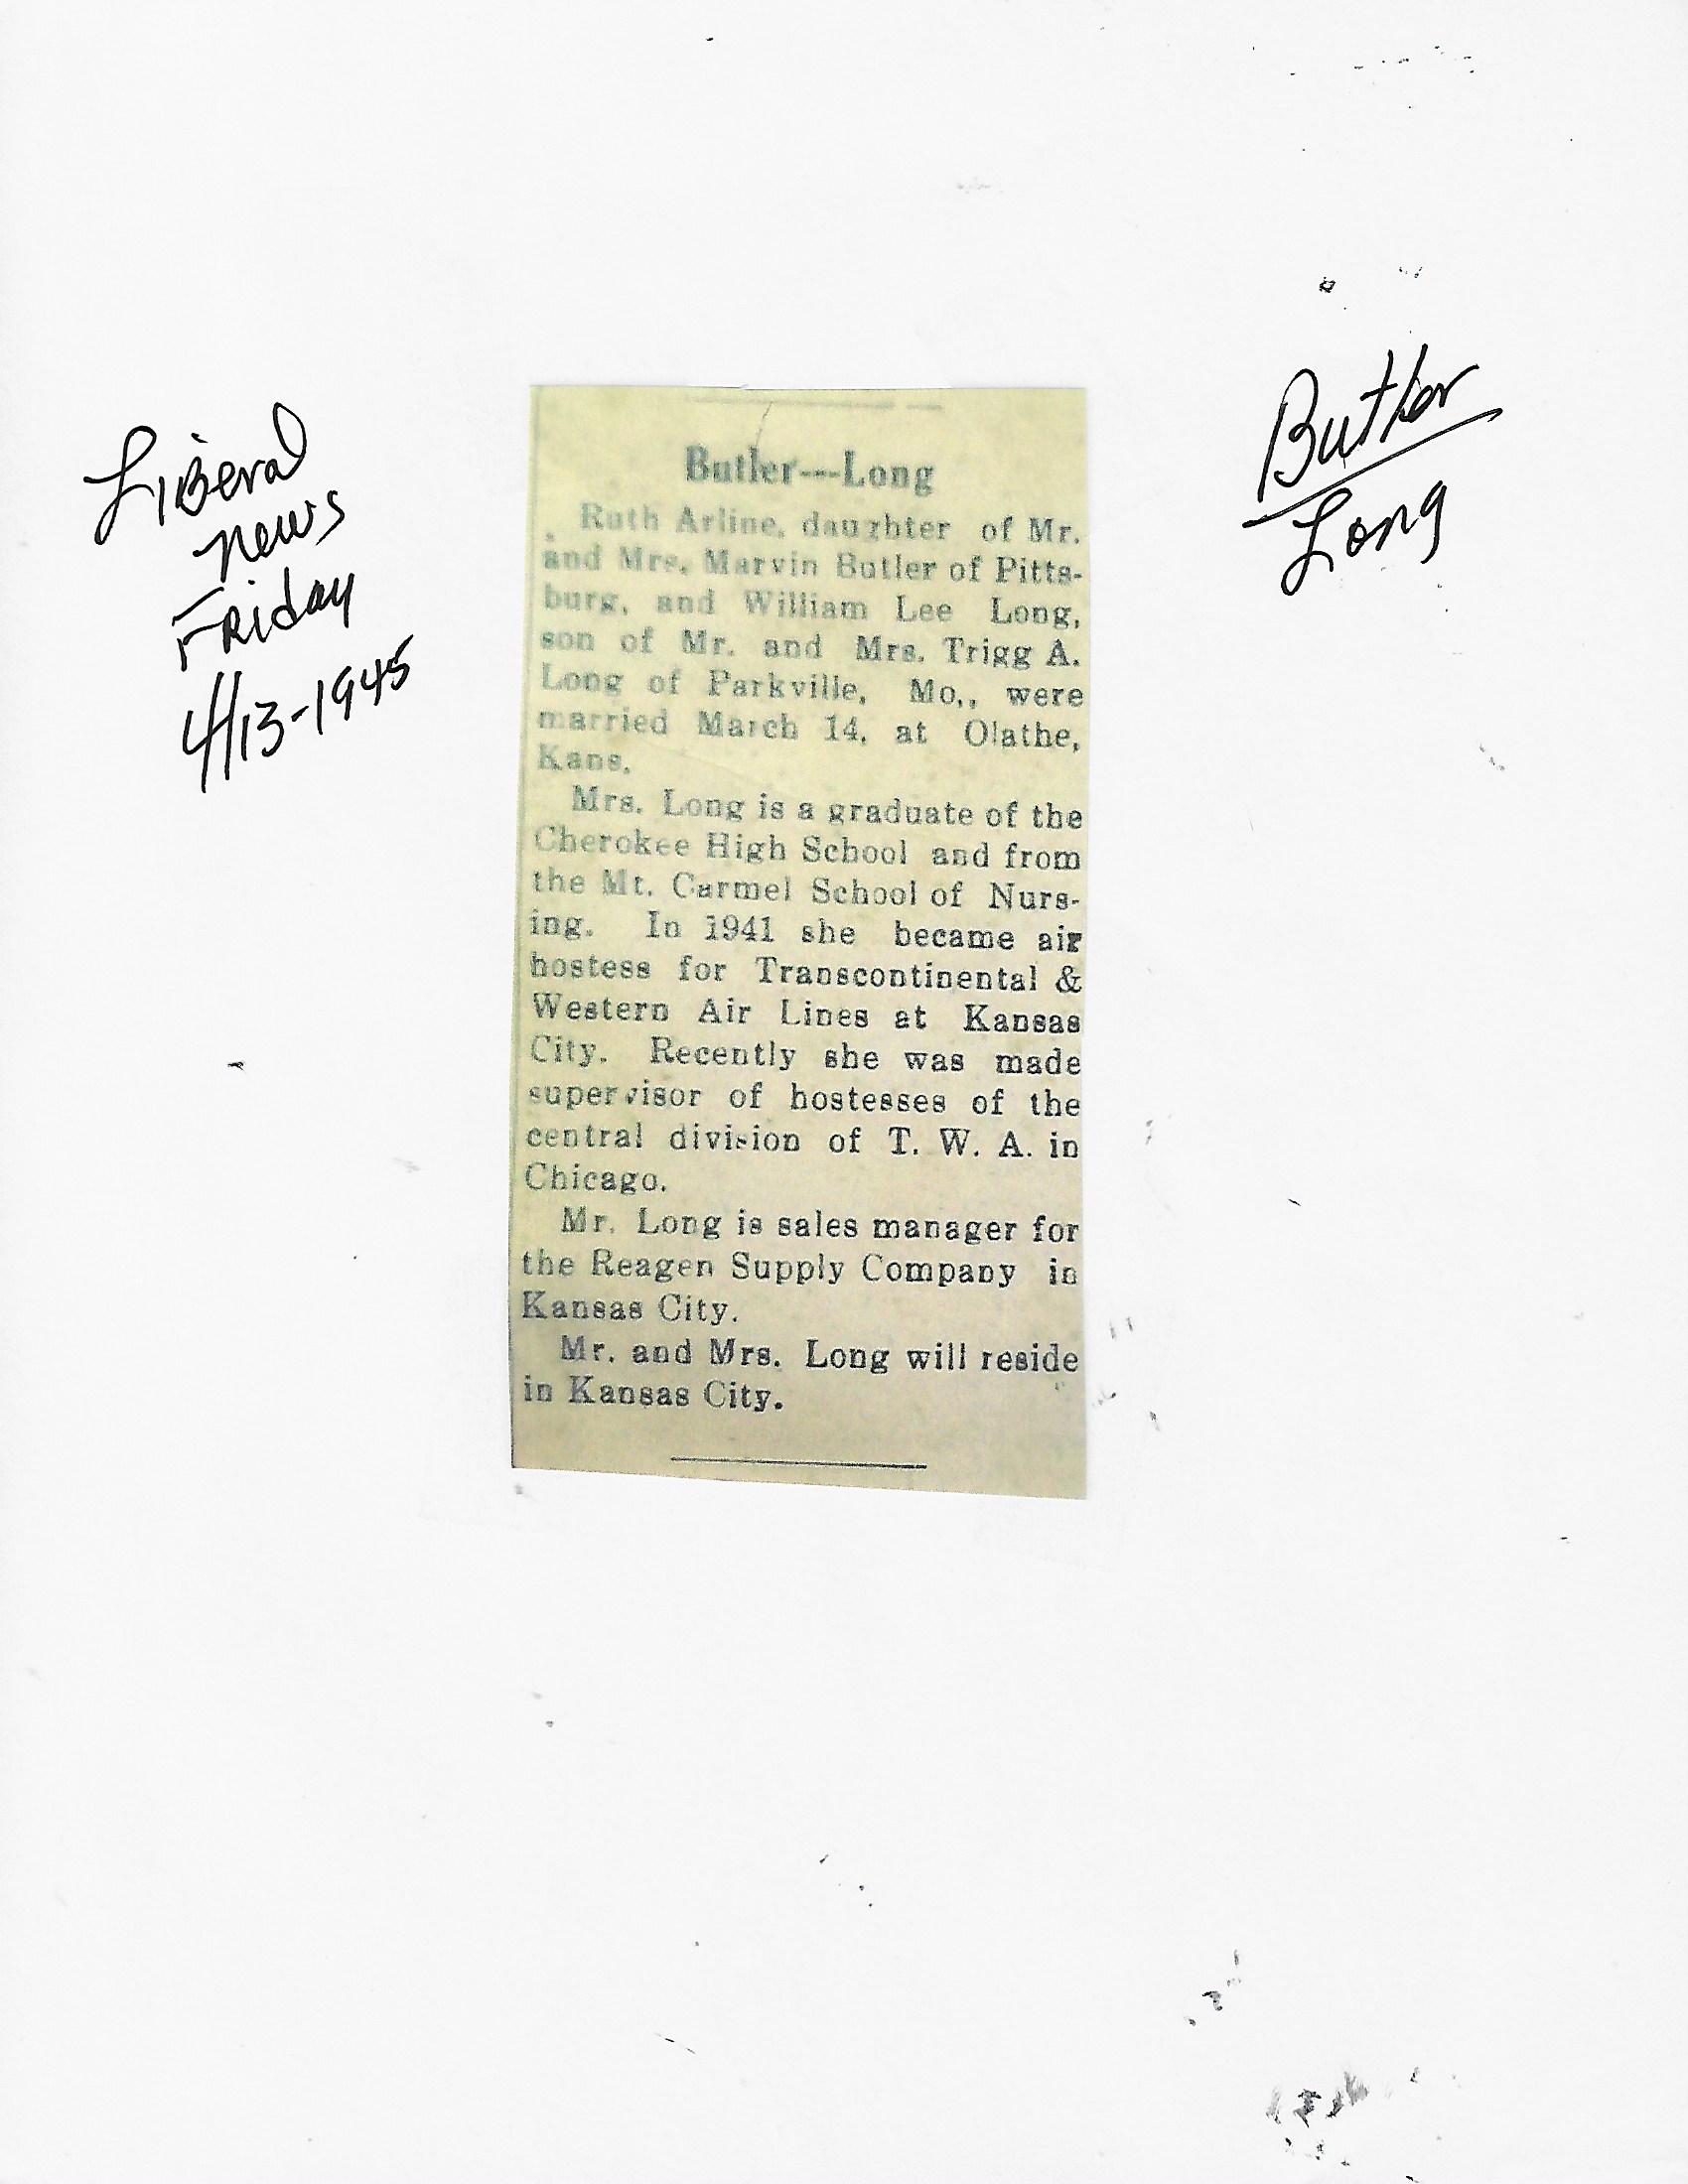 Liberal
news
Friday
4/13-1945
Butler
Long
Butler---Long
Ruth Arline, daughter of Mr.
and Mrs. Marvin Butler of Pitts-
burg, and William Lee Long,
son of Mr. and Mrs. Trigg A.
Long of Parkville, Mo., were
married March 14, at Olathe,
Kans.
Mrs. Long is a graduate of the
Cherokee High School and from
the Mt. Carmel School of Nurs-
ing. In 1941 she became air
hostess for Transcontinental &
Western Air Lines at Kansas
City. Recently she was made
supervisor of hostesses of the
central division of T. W. A. in
Chicago.
Mr. Long is sales manager for
the Reagen Supply Company in
Kansas City.
Mr. and Mrs. Long will reside
in Kansas City.